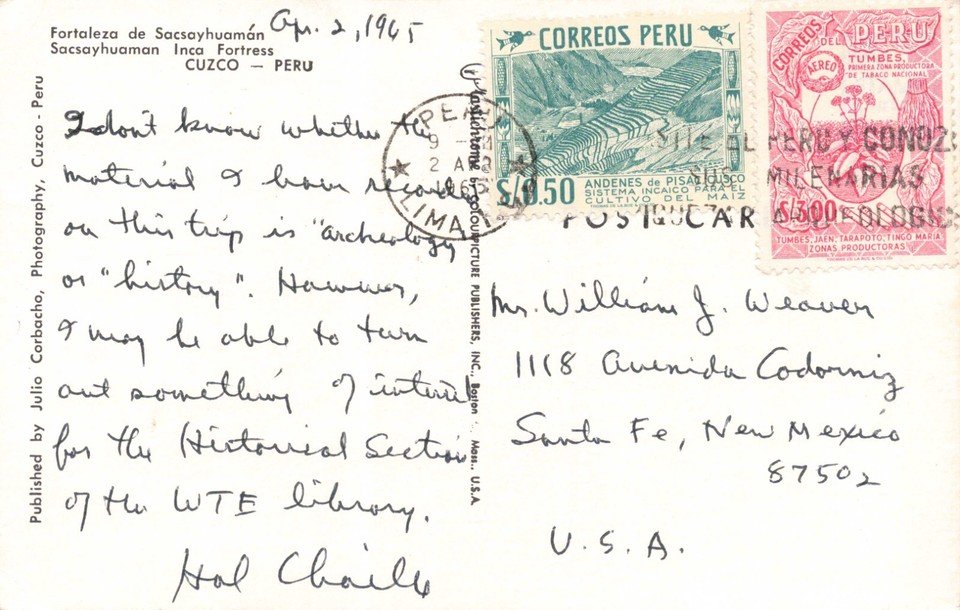 Fortaleza de Sacsayhuamán
Sacsayhuaman Inca Fortress
CUZCO — PERU
Apr. 2, 1965
I don't know whether the
material I have recorded
on this trip is "archeology"
or "history". However,
I may be able to turn
out something of interest
for the Historical Section
of the WTE library.
Hal Chaille
Published by Julio Corbacho, Photography, Cuzco - Peru
Plastichrome by COLOURPICTURE PUBLISHERS, INC., Boston Mass., U.S.A.
POST CARD
CORREOS PERU
S/0.50
ANDENES DE PISAC, CUSCO
SISTEMA INCAICO PARA EL
CULTIVO DEL MAIZ
CORREOS DEL PERU
AEREO
TUMBES,
PRIMERA ZONA PRODUCTORA
DE TABACO NACIONAL
S/.3.00
TUMBES, JAEN, TARAPOTO, TINGO MARIA
ZONAS PRODUCTORAS
PERU
2 ABR
65
LIMA
VISITE EL PERU Y CONOZCA
SUS MILENARIAS
Mr. William J. Weaver
1118 Avenida Codorniz
Santa Fe, New Mexico
87502
U.S.A.